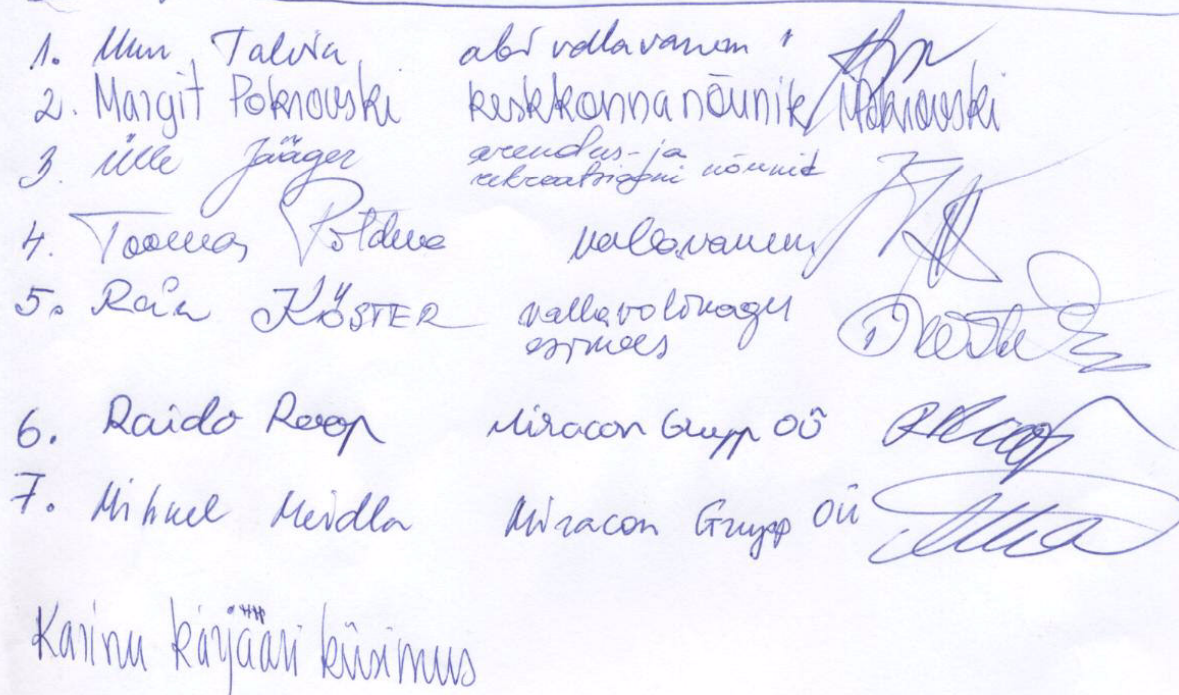 1. Talvia abivallavanem
2. Margit Poknowski keskkonnanõunik Mpoknowski
3. Ülle Jääger arendus- ja
rekreatsiooni nõunik
4. Toomas Põldma vallavanem
5. Rein KÖSTER vallavolikogu
esimees
6. Raido Roop Miracon Grupp OÜ
7. Mihkel Meidla Miracon Grupp OÜ
Karinu karjääri küsimus